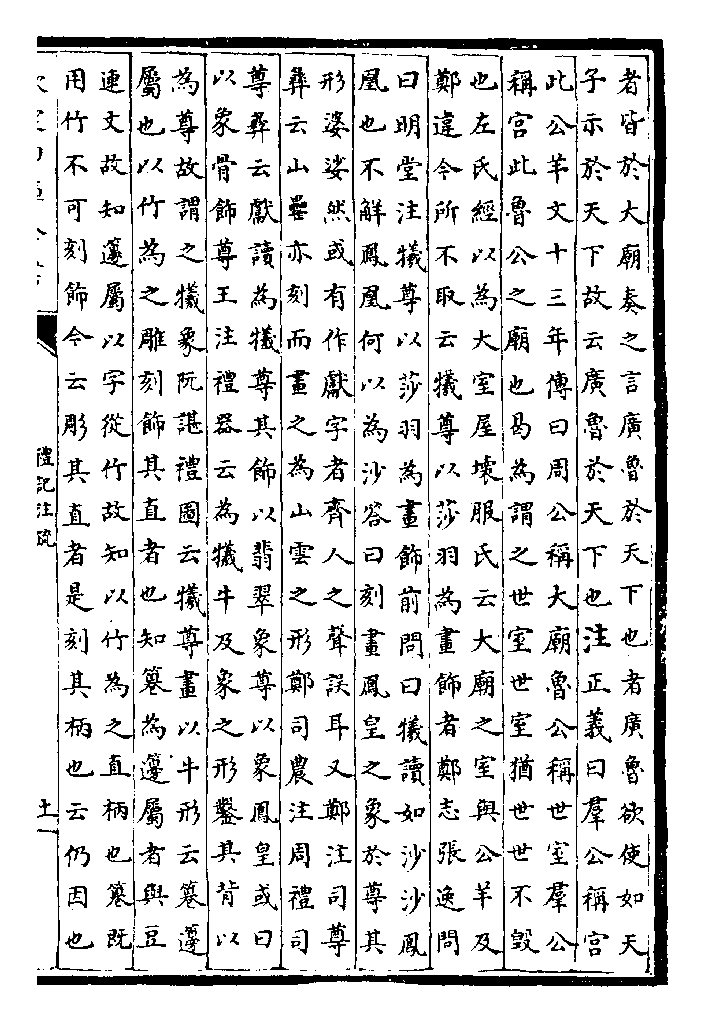 者皆於大廟奏之言廣魯於天下也者廣魯欲使如天
子示於天下故云廣魯於天下也注正義曰羣公稱宫
此公羊文十三年傳曰周公稱大廟魯公稱世室羣公
稱宫此魯公之廟也曷為謂之世室世室猶世世不毁
也左氏經以為大室屋壊服氏云大廟之室與公羊及
鄭違今所不取云犧尊以莎羽為畫飾者鄭志張逸問
曰明堂注犧尊以莎羽為畫飾前問曰犧讀如沙沙鳳
凰也不解鳳凰何以為沙答曰刻畫鳳皇之象於尊其
形婆娑然或有作獻字者齊人之聲誤耳又鄭注司尊
彝云山罍亦刻而畫之為山雲之形鄭司農注周禮司
尊彝云獻讀為犧尊其飾以翡翠象尊以象鳳皇或曰
以象骨飾尊王注禮器云為犧牛及象之形鑿其背以
為尊故謂之犧象阮諶禮圖云犧尊畫以牛形云簋籩
屬也以竹為之雕刻飾其直者也知簋為籩屬者與豆
連文故知籩屬以字從竹故知以竹為之直柄也簋既
用竹不可刻飾今云彫其直者是刻其柄也云仍因也
禮記注疏
十一